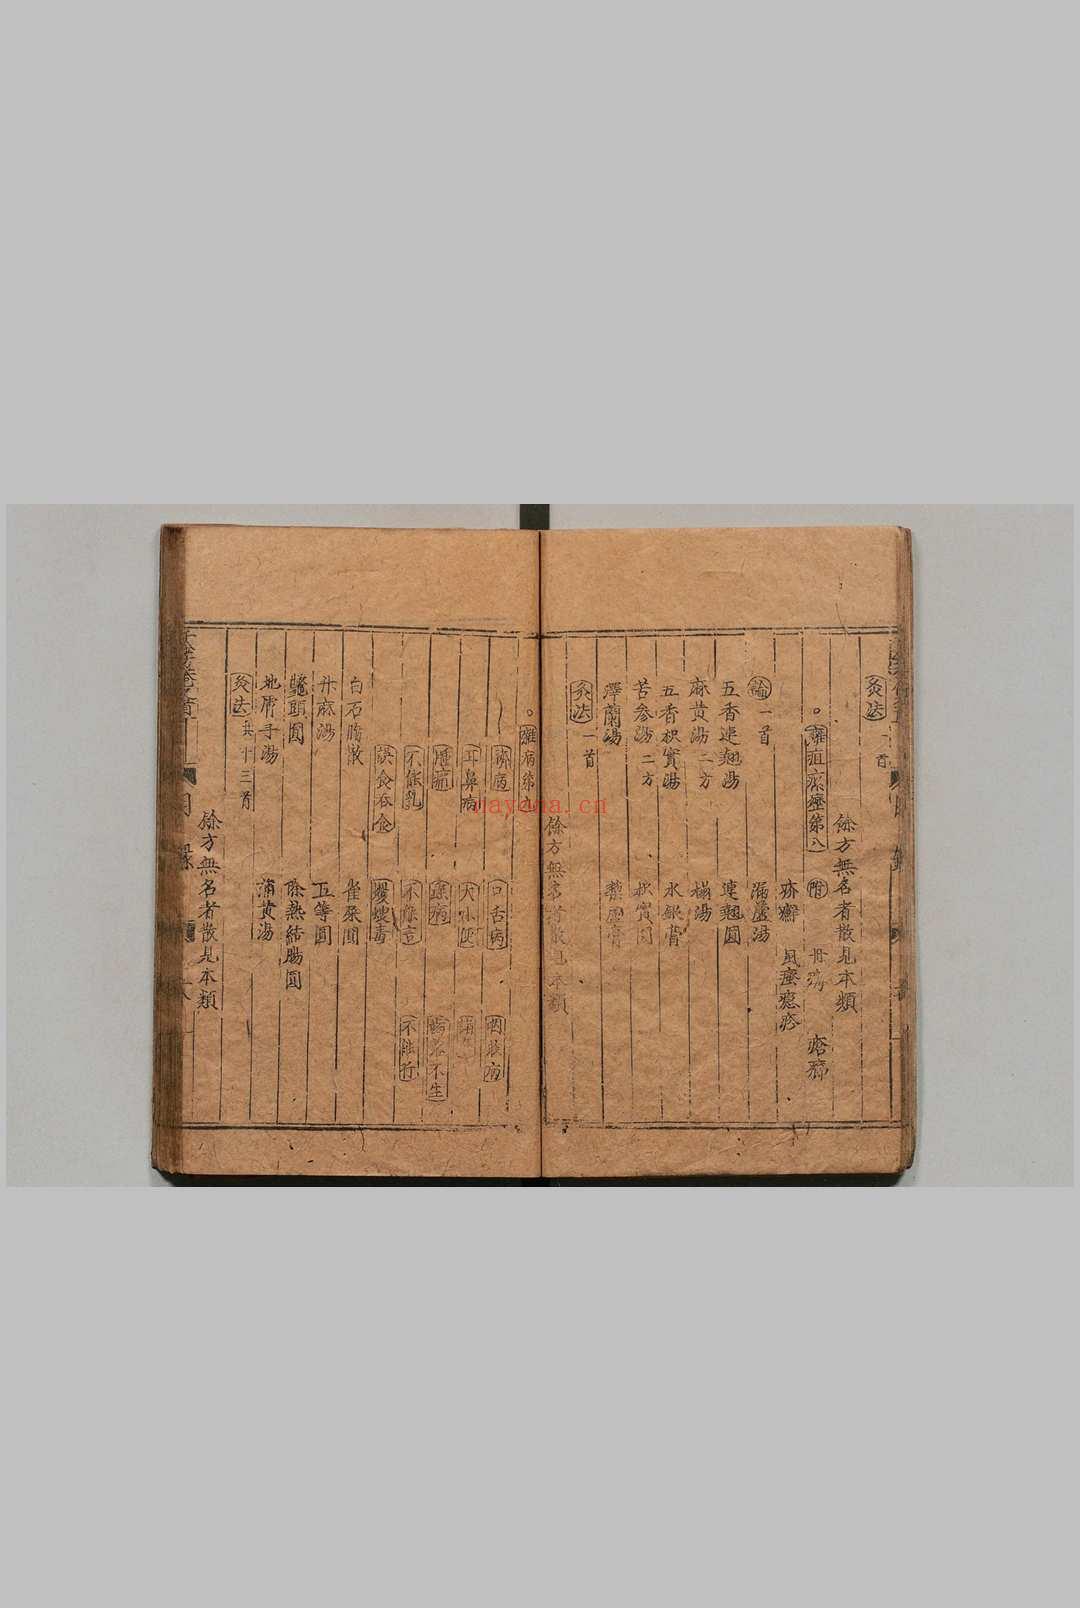 灸法一首
餘方無名者散見本類
癰疽瘰癧第八
附 丹 瘡癤
疥癬 風瘙癮疹
論一首 漏蘆湯
五香連翹湯 連翹圓
麻黄湯二方 搨湯
五香枳實湯 水銀膏
苦參湯二方 枳實圓
澤蘭湯 藜蘆膏
灸法一首
餘方無名者散見本類
雜病第九
臍病 口舌病 咽喉病
耳鼻病 大小便
不能乳 不能言 不能行
誤食吞金
白石脂散 雀屎圓
升麻湯 五等圓
鱉頭圓 除熱結腸圓
地膚子湯 蒲黄湯
灸法共十三首
餘方無名者散見本類
目錄
nayona.cn